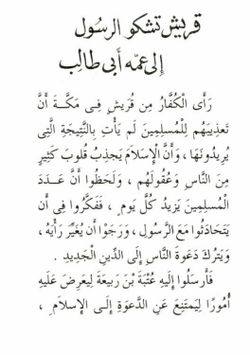 قريش تشكو الرسول
إلى عمه أبى طالب
رَأَى الْكُفَّارُ مِن قُرَيشٍ فِى مَكَّةَ أَنَّ
تَعذِيبَهُم لِلْمُسلِمِينَ لَم يَأتِ بِالنَّتِيجَةِ الَّتِى
يُرِيدُونَهَا ، وَأَنَّ الْإِسلَامَ يَجذِبُ قُلُوبَ كَثِيرٍ
مِنَ النَّاسِ وَعُقُولَهُم ، وَلَحَظُوا أَنَّ عَدَدَ
الْمُسلِمِينَ يَزِيدُ كُلَّ يَومٍ ، فَفَكَّرُوا فِى أَن
يَتَحَادَثُوا مَعَ الرَّسُولِ ، وَرَجَوا أَن يُغَيِّرَ رَأيَهُ ،
وَيَترُكَ دَعوَةَ النَّاسِ إِلَى الدِّينِ الْجَدِيدِ .
فَأَرسَلُوا إِلَيهِ عُتبَةَ بْنَ رَبِيعَةَ لِيَعرِضَ عَلَيهِ
أُمُورًا لِيَمتَنِعَ عَنِ الدَّعوَةِ إِلَى الْإِسلَامِ ،